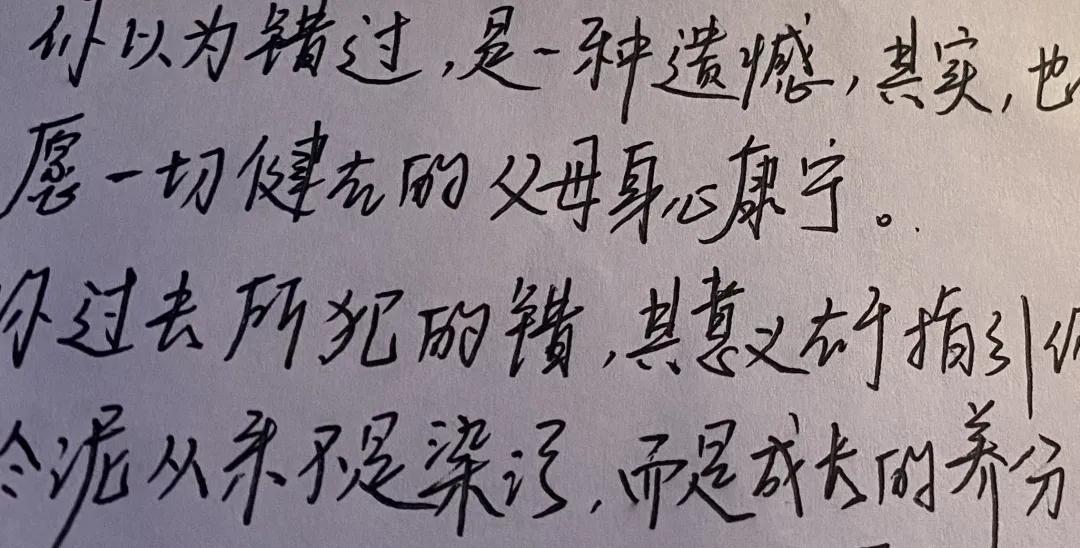 你以为错过,是一种遗憾,其实,也
愿一切健在的父母身心康宁。
你过去所犯的错,其意义在于指引你
淤泥从来不是染污,而是成长的养分